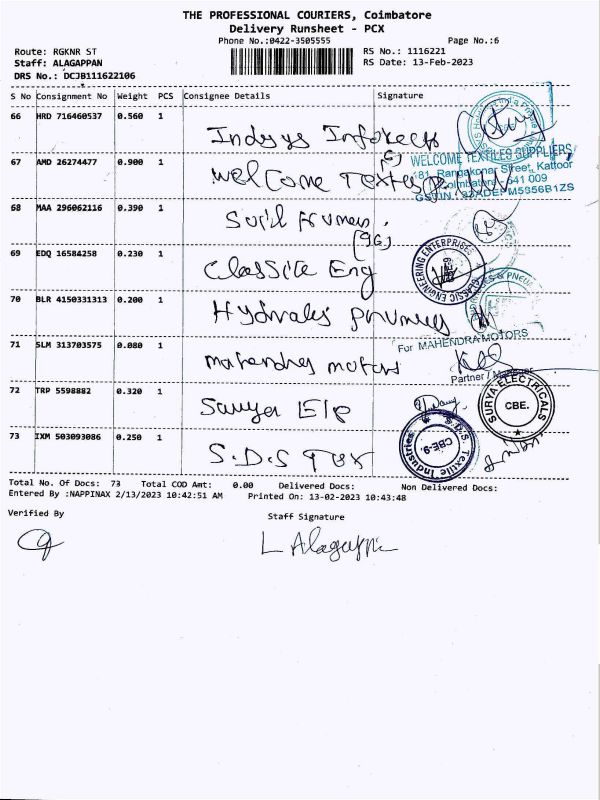 THE PROFESSIONAL COURIERS, Coimbatore
Delivery Runsheet - PCX
Phone No.:0422-3505555 Page No.:6
Route: RGKNR ST RS No.: 1116221
Staff: ALAGAPPAN RS Date: 13-Feb-2023
DRS No.: DCJB111622106
S No Consignment No Weight PCS Consignee Details Signature
66 HRD 716460537 0.560 1
Indsys Infotech
67 AMD 26274477 0.900 1
Welcome
WELCOME TEXTILES SUPPLIERS,
181, Rangakonar Street, Kattoor
Coimbatore - 641 009
68 MAA 296062116 0.390 1
(96)
69 EDQ 16584258 0.230 1
Classic Eng
CLASSIC ENGINEERING ENTERPRISES
70 BLR 4150331313 0.200 1
71 SLM 313703575 0.080 1
For MAHENDRA MOTORS
mahendra motors
Partner / Manager
72 TRP 5598882 0.320 1
SURYA ELECTRICALS
CBE.
73 IXM 503093086 0.250 1
S.D.S Tex
S.D.S. Textile Industries
CBE-9.
Total No. Of Docs: 73 Total COD Amt: 0.00 Delivered Docs: Non Delivered Docs:
Entered By :NAPPINAX 2/13/2023 10:42:51 AM Printed On: 13-02-2023 10:43:48
Verified By Staff Signature
L Alagappa